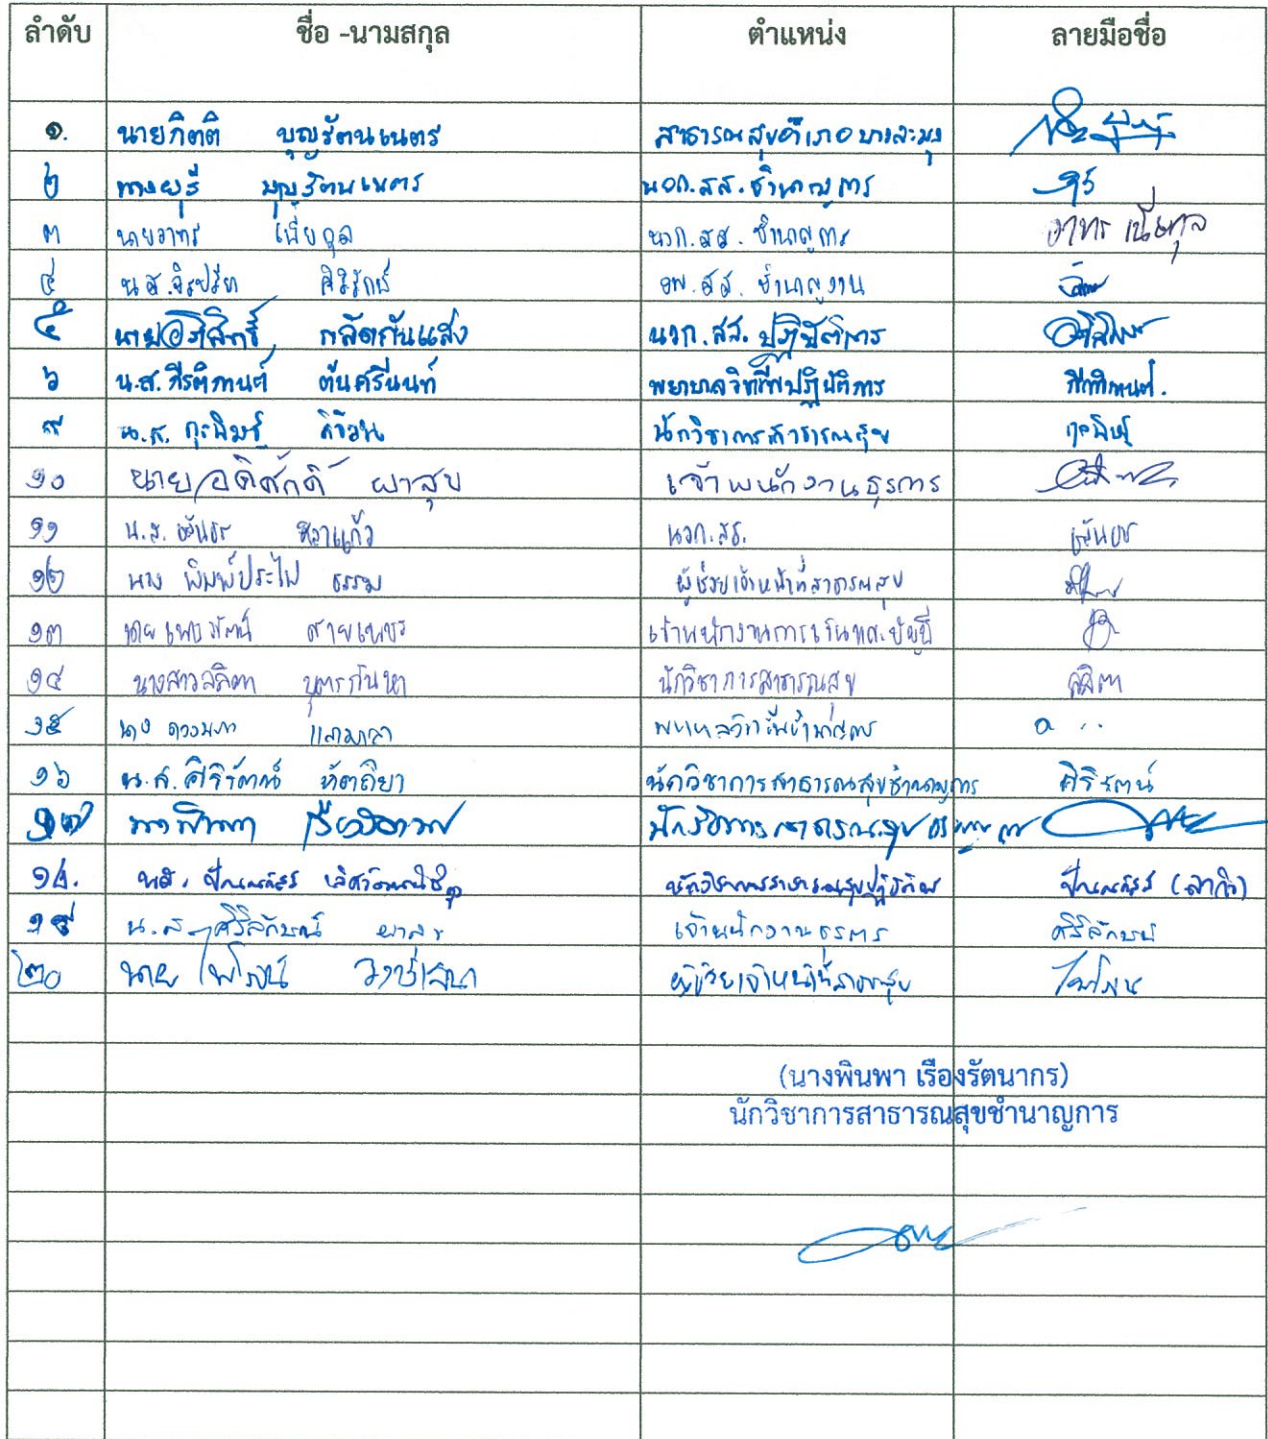 ลำดับ ชื่อ -นามสกุล ตำแหน่ง ลายมือชื่อ
๑. นายกิตติ บุญรัตนเนตร สาธารณสุขอำเภอบางละมุง
๒ บุญรัตนเนตร นวก.สส.ชำนาญการ
๓ นายอาทร เนี่ยกุล นวก.สส. ชำนาญการ อาทร เนี่ยกุล
๔ น.ส.จิรปรียา ศิริรักษ์ จพ.สส. ชำนาญงาน
๕ นายอภิสิทธิ์ กลัดกันแสง นวก.สส. ปฏิบัติการ
๖ น.ส. กีรติกานต์ ตันศรีนนท์ พยาบาลวิชาชีพปฏิบัติการ กีรติกานต์.
๙ น.ส. นักวิชาการสาธารณสุข
๑๐ นาย อดิศักดิ์ ผาสุข เจ้าพนักงานธุรการ
๑๑ น.ส. หลาแก้ว นวก.สธ.
๑๒ นาง พิมพ์ประไพ ธรรม ผู้ช่วยเจ้าหน้าที่สาธารณสุข
๑๓ นาย สายเพชร เจ้าพนักงานการเงินและบัญชี
๑๔ นางสาวลลิตา บุตรกันหา นักวิชาการสาธารณสุข ลลิตา
๑๕ นาง ดวงนภา พยาบาลวิชาชีพชำนาญการ
๑๖ น.ส. ศิริรัตน์ หัตถิยา นักวิชาการสาธารณสุขชำนาญการ ศิริรัตน์
๑๗ นางพินพา เรืองรัตนากร นักวิชาการสาธารณสุขชำนาญการ
๑๘. นส. ปัณณภัสร์ นักวิชาการสาธารณสุขปฏิบัติการ ปัณณภัสร์
๑๙ น.ส. ศิริลักษณ์ เจ้าพนักงานธุรการ ศิริลักษณ์
๒๐ นาย ไพโรจน์ วงษ์เสนา ผู้ช่วยเจ้าหน้าที่สาธารณสุข ไพโรจน์
(นางพินพา เรืองรัตนากร)
นักวิชาการสาธารณสุขชำนาญการ